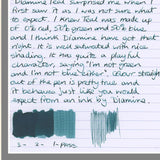 Diamine Teal surprised me when I
first saw it as I was not sure what
to expect. I knew Teal was made up
of 1/3 red, 3/5 green and 3/5 blue
and I think Diamine have got that
right. It is well saturated with nice
shading. Its quite a playful
character, saying "I'm not green
and I'm not blue either". Colour straight
out of the pen is pretty true and
it behaves just like you would
expect from an ink by Diamine.
3- 2- 1-Pass